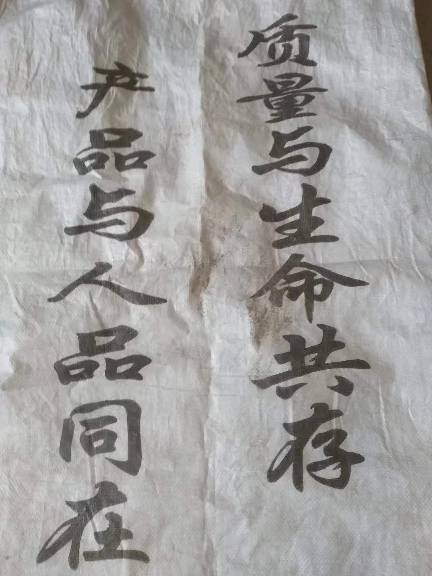 质量与生命共存
产品与人品同在